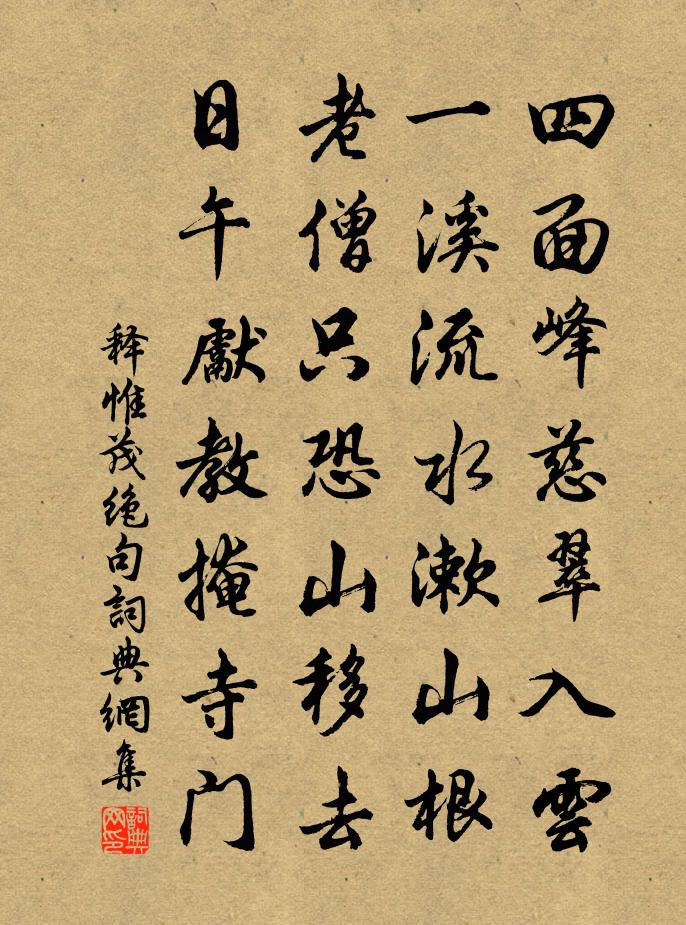 四面峰慈翠入雲
一溪流水漱山根
老僧只恐山移去
日午獻教掩寺門
释惟茂絶句詞典網集
詞典网印